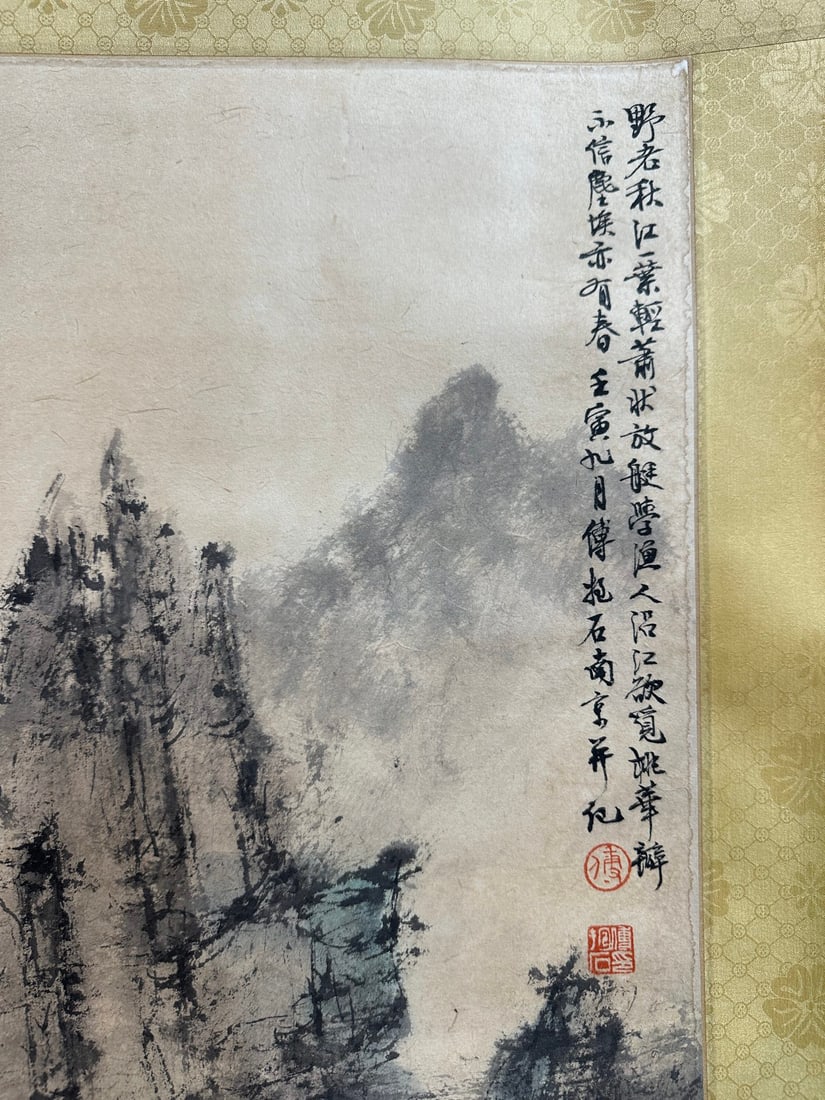 野老秋江一葉輕蕭狀放艇學漁人沿江欲覓桃華辯
不信塵埃亦有春 壬寅九月傅抱石南京並記
傅
傅抱石印